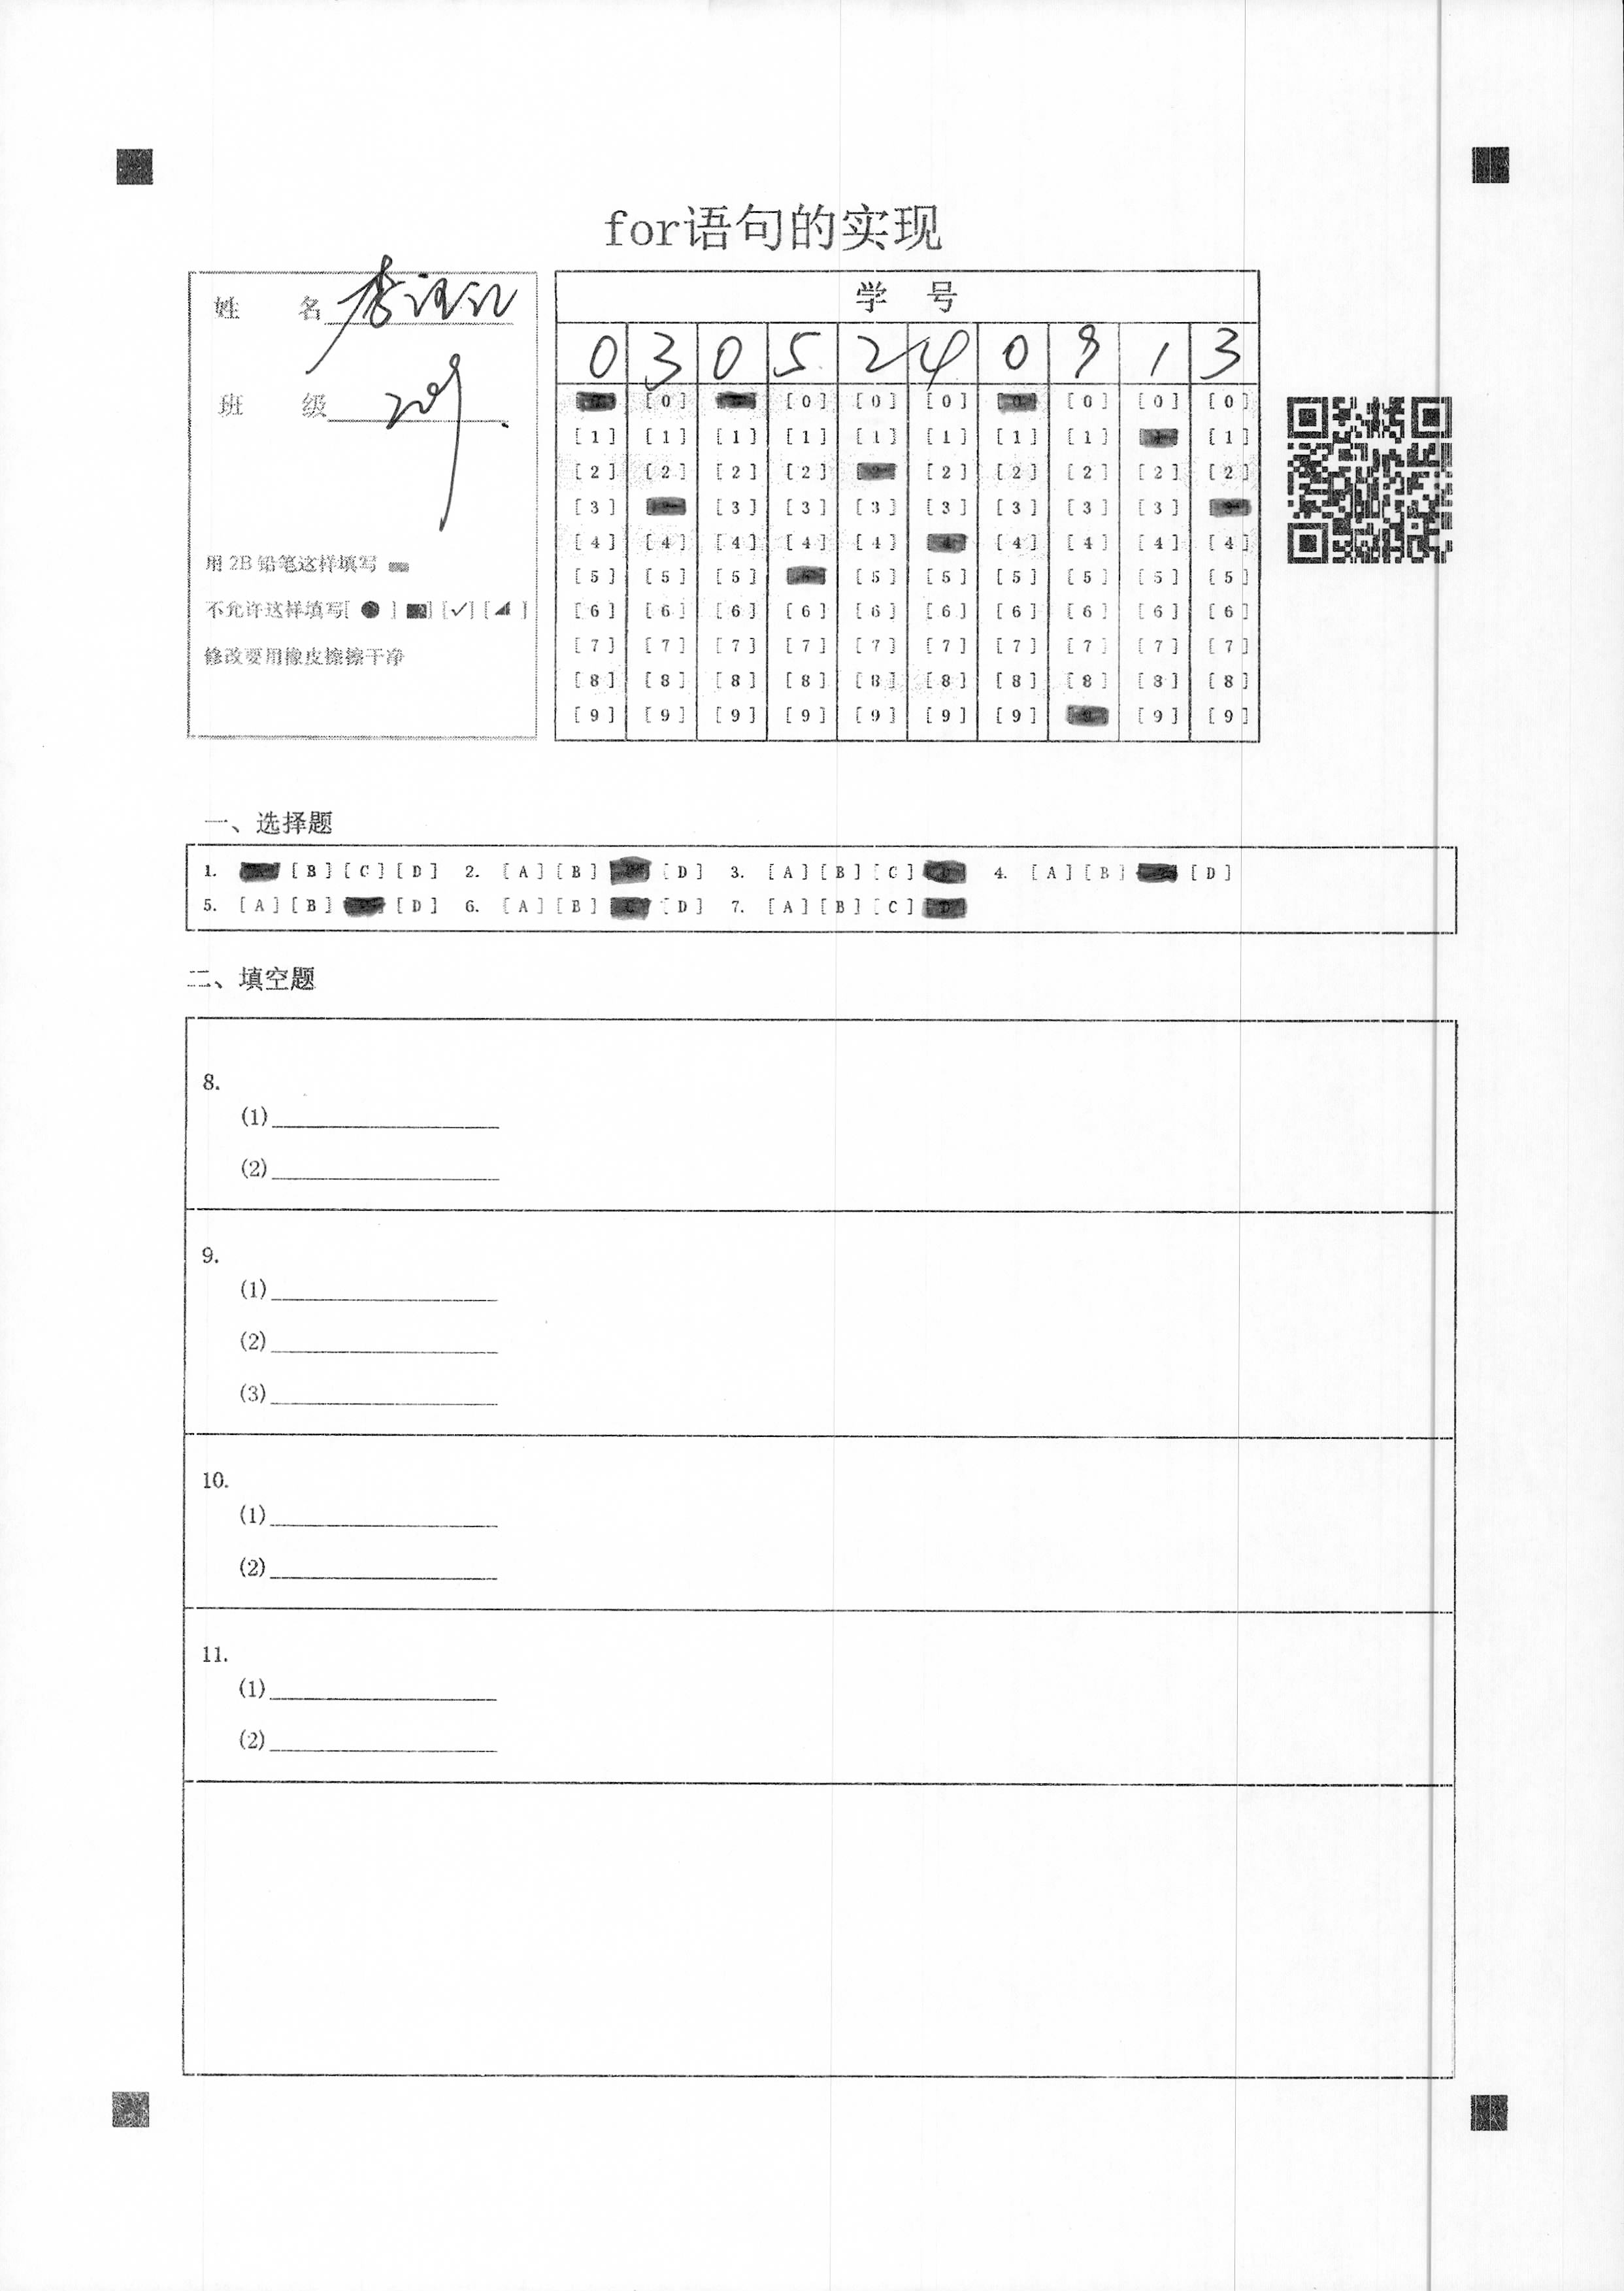 for语句的实现
姓 名
班 级 209
用 2B 铅笔这样填写
不允许这样填写[ ● ] [■] [✓] [◢ ]
修改要用橡皮擦擦干净
学 号
0 3 0 5 2 4 0 9 1 3
[0] [0] [0] [0] [0] [0] [0] [0] [0] [0]
[1] [1] [1] [1] [1] [1] [1] [1] [1] [1]
[2] [2] [2] [2] [2] [2] [2] [2] [2] [2]
[3] [3] [3] [3] [3] [3] [3] [3] [3] [3]
[4] [4] [4] [4] [4] [4] [4] [4] [4] [4]
[5] [5] [5] [5] [5] [5] [5] [5] [5] [5]
[6] [6] [6] [6] [6] [6] [6] [6] [6] [6]
[7] [7] [7] [7] [7] [7] [7] [7] [7] [7]
[8] [8] [8] [8] [8] [8] [8] [8] [8] [8]
[9] [9] [9] [9] [9] [9] [9] [9] [9] [9]
一、选择题
1. [A] [B] [C] [D] 2. [A] [B] [C] [D] 3. [A] [B] [C] [D] 4. [A] [B] [C] [D]
5. [A] [B] [C] [D] 6. [A] [B] [C] [D] 7. [A] [B] [C] [D]
二、填空题
8.
(1)
(2)
9.
(1)
(2)
(3)
10.
(1)
(2)
11.
(1)
(2)